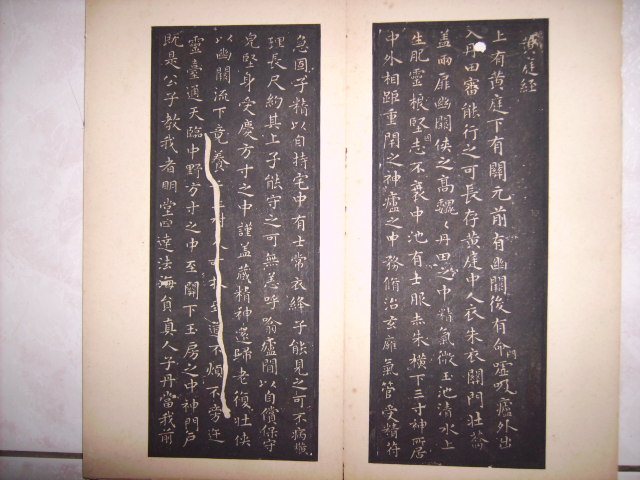 黃庭經
上有黃庭下有關元前有幽關後有命門噓吸廬外出
入丹田審能行之可長存黃庭中人衣朱衣關門壯蘥
蓋兩扉幽關俠之高巍〻丹田之中精氣微玉池清水上
生肥靈根堅志不衰中池有士服赤朱橫下三寸神所居
中外相距重閉之神廬之中務脩治玄癰氣管受精符
急固子精以自持宅中有士常衣絳子能見之可不病橫
理長尺約其上子能守之可無恙呼噏廬間以自償保守
完堅身受慶方寸之中謹蓋藏精神還歸老復壯俠
以幽關流下竟養樹不可杖至道不煩不旁迕
靈臺通天臨中野方寸之中至關下玉房之中神門戶
既是公子教我者明堂四達法海員真人子丹當我前